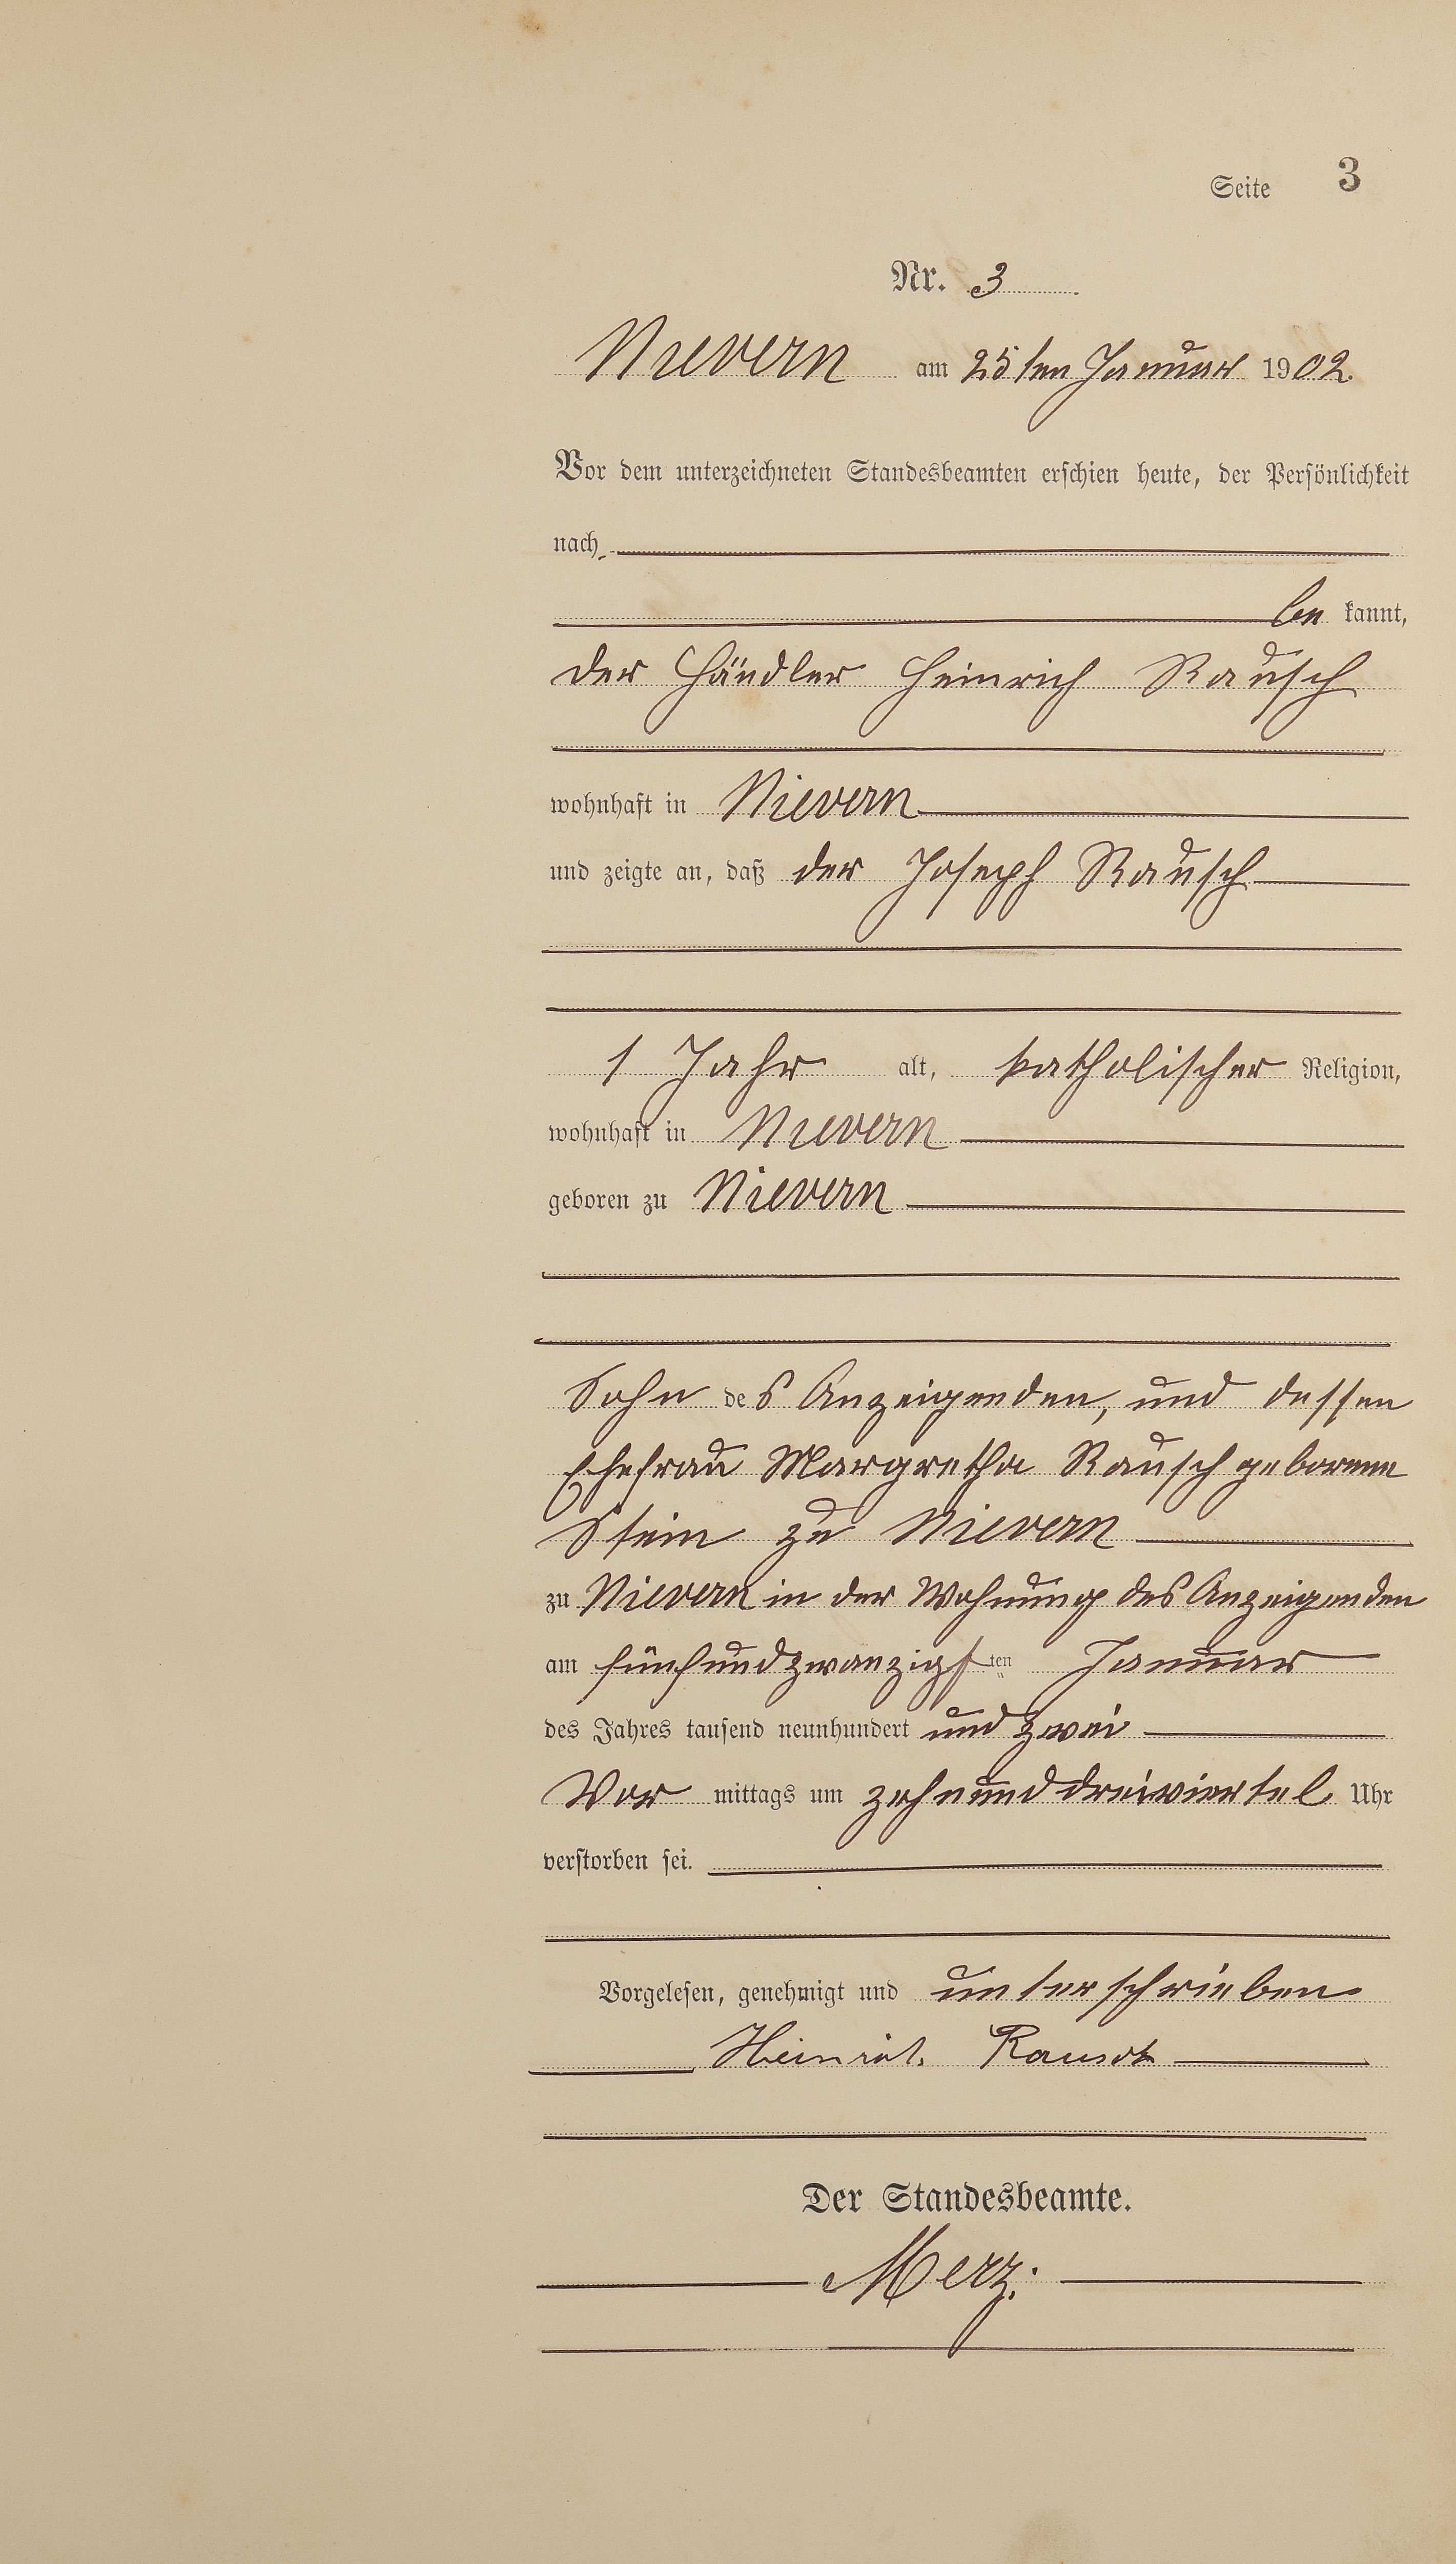 Seite 3
Nr. 3
Nievern am 25ten Januar 1902.
Vor dem unterzeichneten Standesbeamten erschien heute, der Persönlichkeit
nach
be kannt,
der Händler Heinrich Rausch
wohnhaft in Nievern
und zeigte an, daß der Joseph Rausch
1 Jahr alt, katholischer Religion,
wohnhaft in Nievern
geboren zu Nievern
Sohn des Anzeigenden, und dessen
Ehefrau Margretha Rausch geborene
Stein zu Nievern
zu Nievern in der Wohnung des Anzeigenden
am fünfundzwanzigsten Januar
des Jahres tausend neunhundert und zwei
Vor mittags um zehnunddreiviertel Uhr
verstorben sei.
Vorgelesen, genehmigt und unterschrieben
Heinrich Rausch
Der Standesbeamte.
Merz.